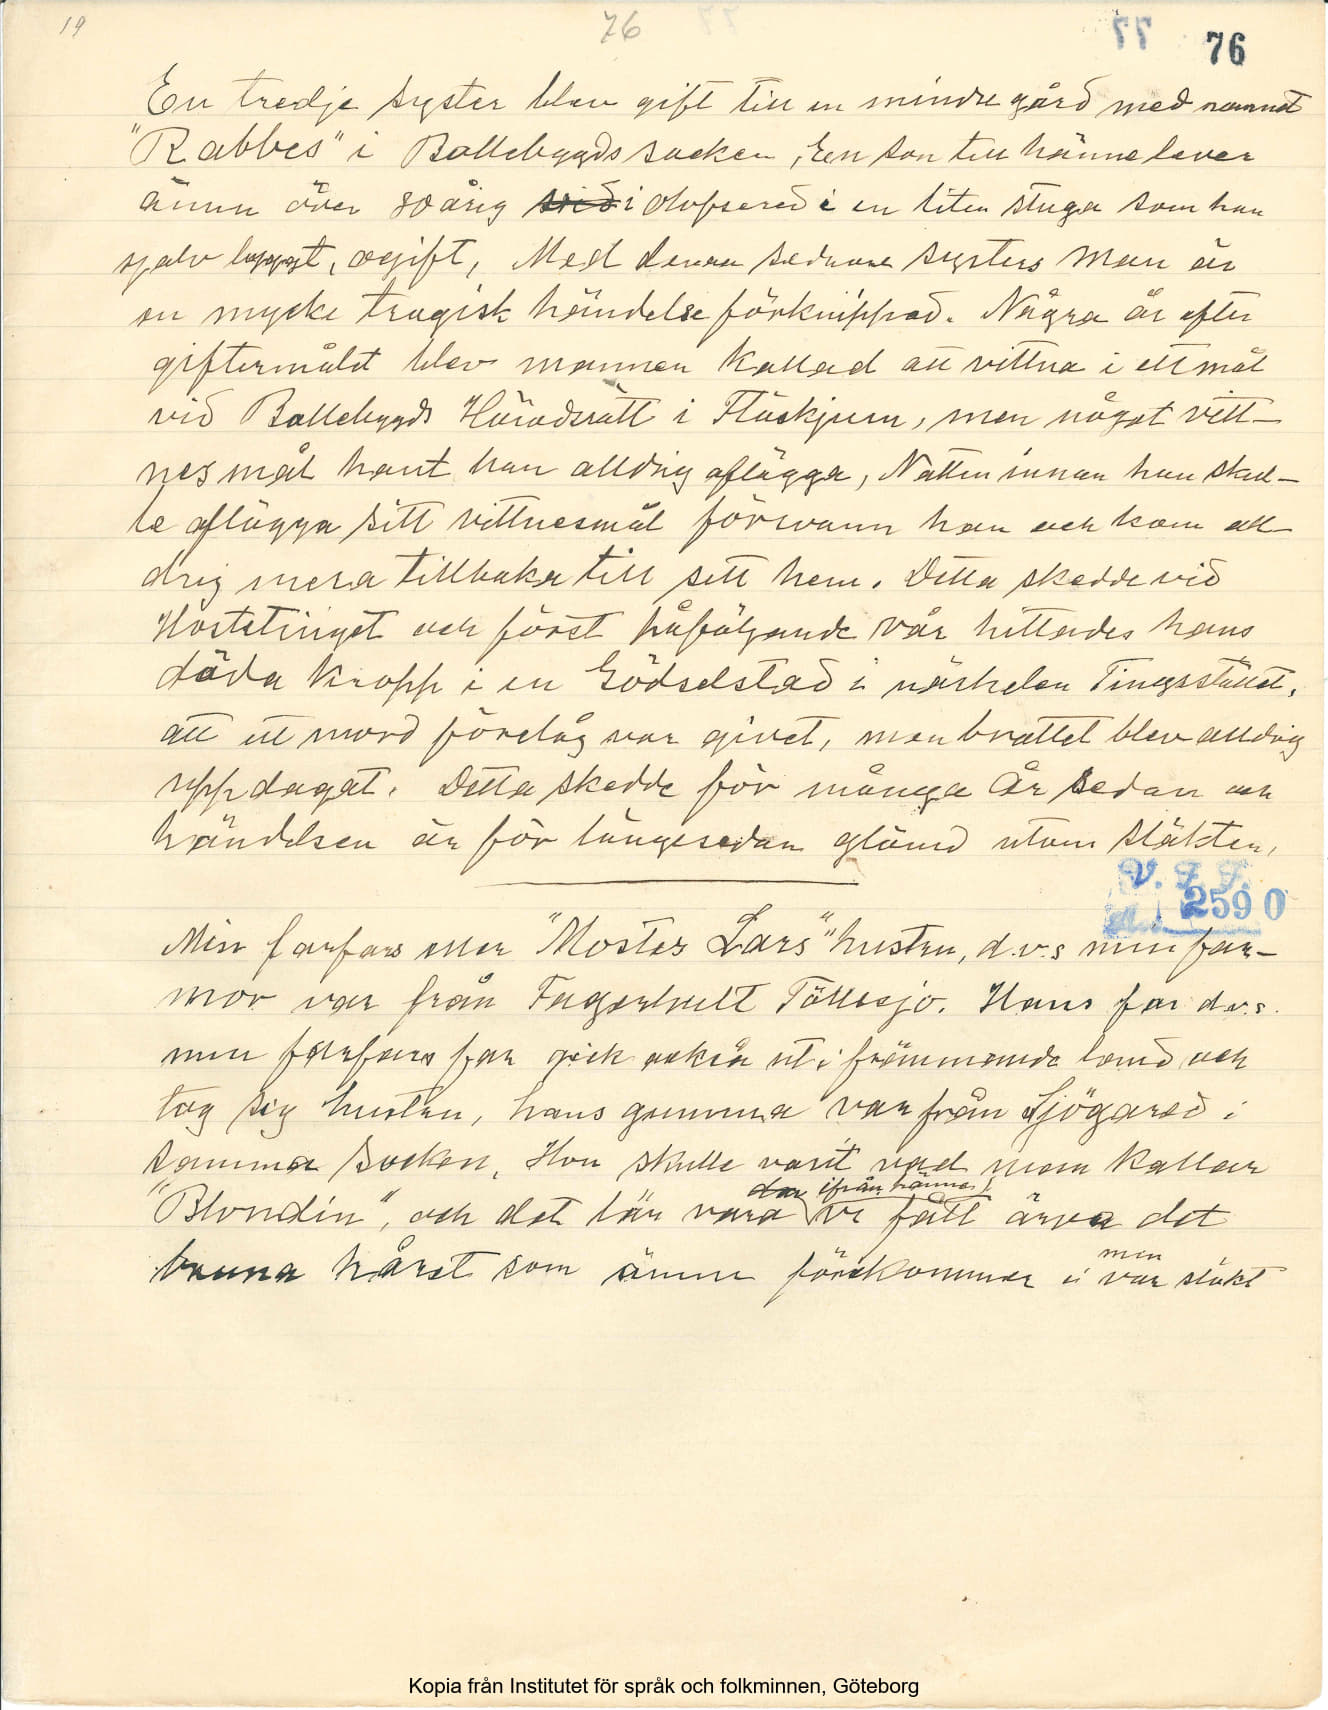 19
76
76
En tredje syster blev gift till en mindre gård med namnet
"Rabbes" i Bollebygds socken, En son till hänne lever
ännu över 80 årig i Olofsered i en liten stuga som han
sjalv byggt, ogift, Med denna sednare systers man är
en mycke tragisk händelse förknippad. Några år efter
giftermålet blev mannen kallad att vittna i ett mål
vid Bollebygds Häradsrätt i Fläskjum, men något vitt-
nesmål hant han alldrig aflägga, Natten innan han skul-
le aflägga sitt vittnesmål försvann han och kom all-
drig mera tillbaka till sitt hem. Detta skedde vid
Hostetinget och först påföljande vår hittades hans
döda kropp i en Gödselstad i närheten Tingsstället,
att ett mord förelåg var givet, men brottet blev alldrig
uppdagat. Detta skedde för många år sedan och
händelsen är för längesedan glömd utom släkten,
V. F. F.
2590
Min farfars eller "Moster Lars" hustru, d.v.s min far-
mor var från Fagerhult Töllesjö. Hans far d.v.s.
min farfars far gick också ut i främmande land och
tog sig hustru, hans gumma var från Sjögared i
samma socken, Hon skulle varit vad man kallar
ifrån hänne
"Blondin", och det lär vara vi fått ärva det
bruna håret som ännu förekommer i vår släkt
men
Kopia från Institutet för språk och folkminnen, Göteborg